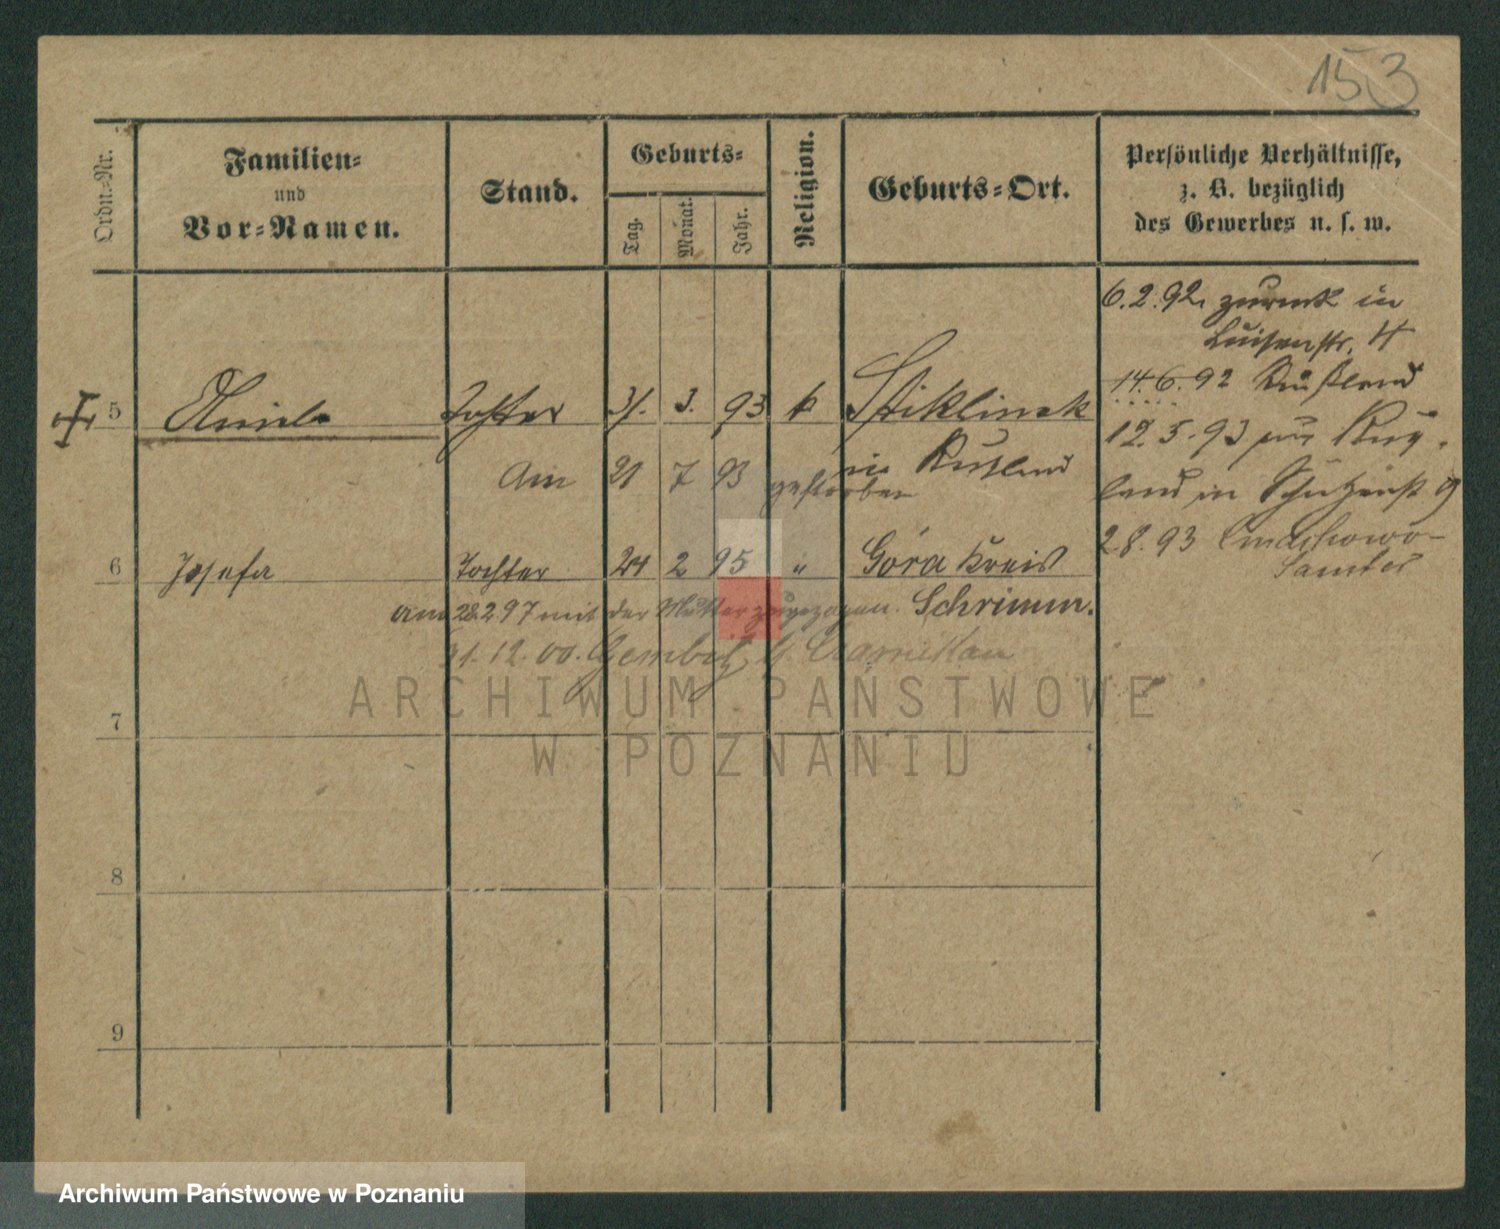 153
Ordn.-Nr.
Familien-
und
Vor-Namen.
Stand.
Geburts-
Tag.
Monat.
Jahr.
Religion.
Geburts-Ort.
Persönliche Verhältnisse,
z. B. bezüglich
des Gewerbes u. s. w.
6.2.92 zurück in
Luisenstr. 4
14.6.92 Rußland
12.5.93 aus Ruß-
land in 9
2.8.93
Samter
5 Tochter 31. 3. 93 k Stiklinek
in Rußland
Am 21 7 93 gestorben
6 Josefa Tochter 24 2 95 " Góra Kreis
Schrimm.
am 28 2 97 mit der Mutter zugezogen.
31.12.00. Gembitz, K. Czarnikau
7
8
9
ARCHIWUM PAŃSTWOWE
W POZNANIU
Archiwum Państwowe w Poznaniu